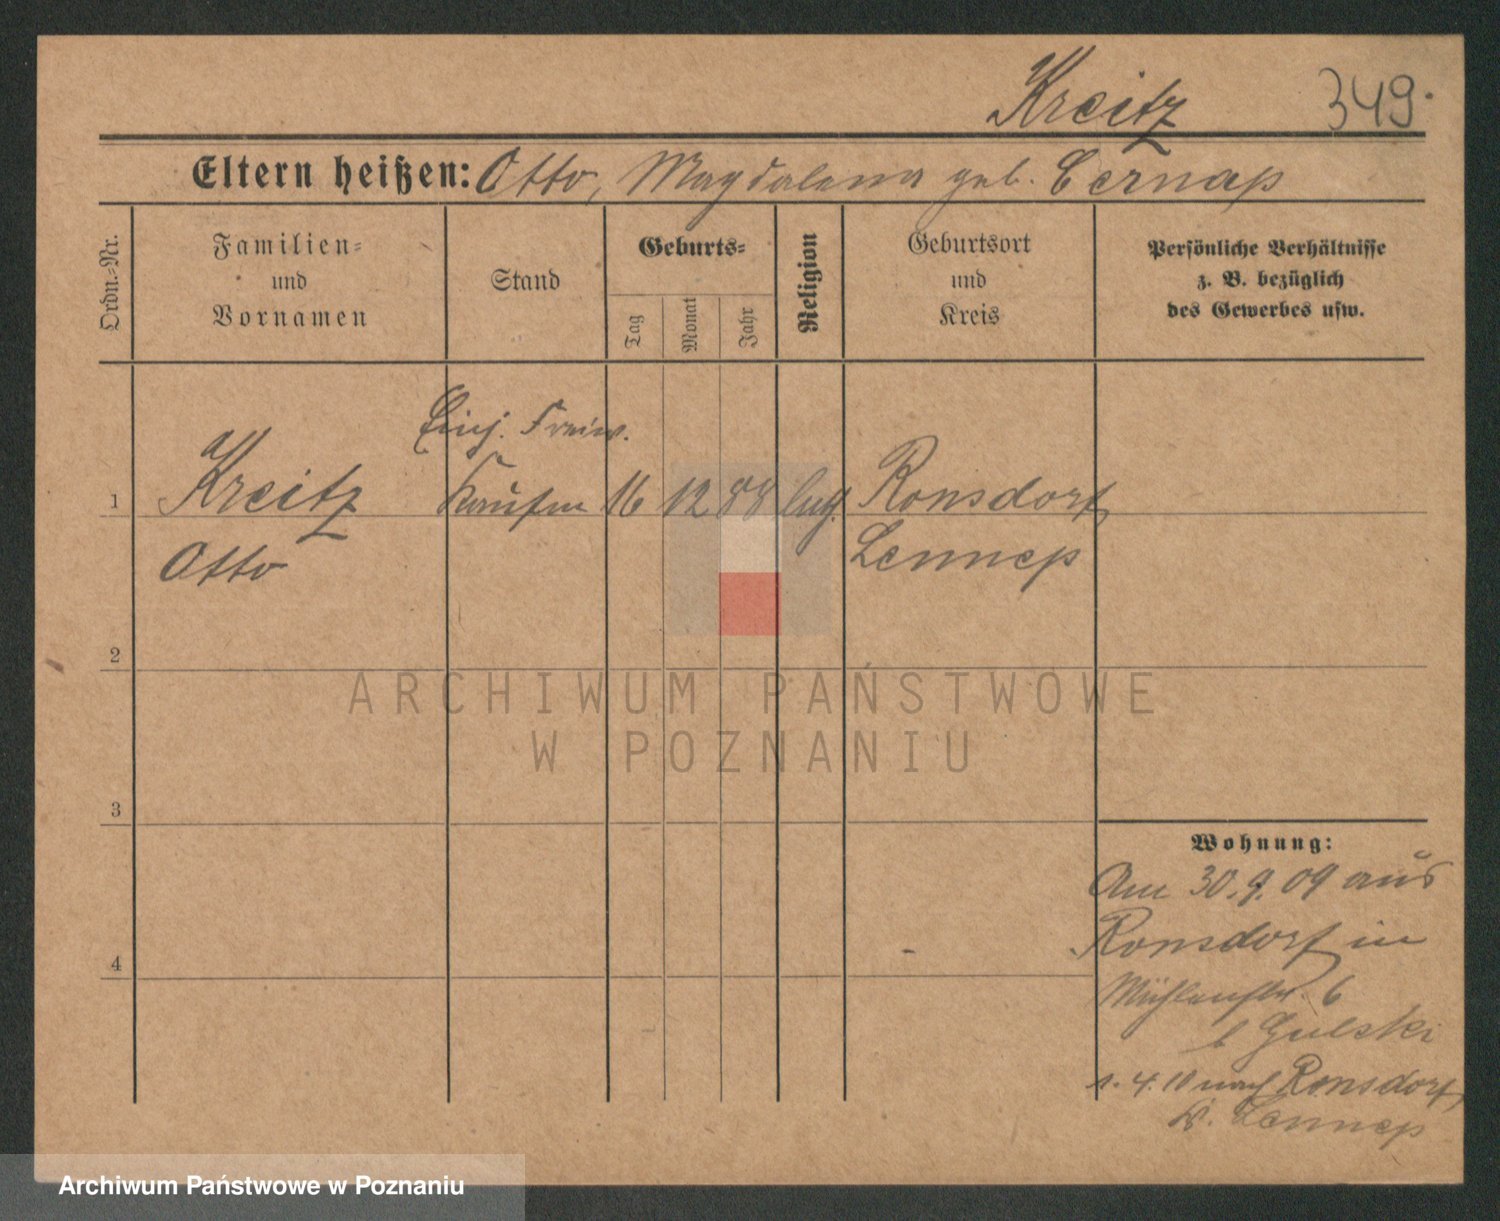 Kreitz 349.
Eltern heißen: Otto, Magdalena geb. Cernap
Ordn.-Nr.
Familien-
und
Vornamen
Stand
Geburts-
Tag
Monat
Jahr
Religion
Geburtsort
und
Kreis
Persönliche Verhältnisse
z. B. bezüglich
des Gewerbes usw.
Einj. Freiw.
1 Kreitz Kaufm 16 12 88 luth. Ronsdorf
Otto Lennep
2
3
4
Wohnung:
Am 30.9.09 aus
Ronsdorf in
Mühlenstr. 6
b Gulski
1.4.10 nach Ronsdorf,
Kr. Lennep
ARCHIWUM PAŃSTWOWE
W POZNANIU
Archiwum Państwowe w Poznaniu